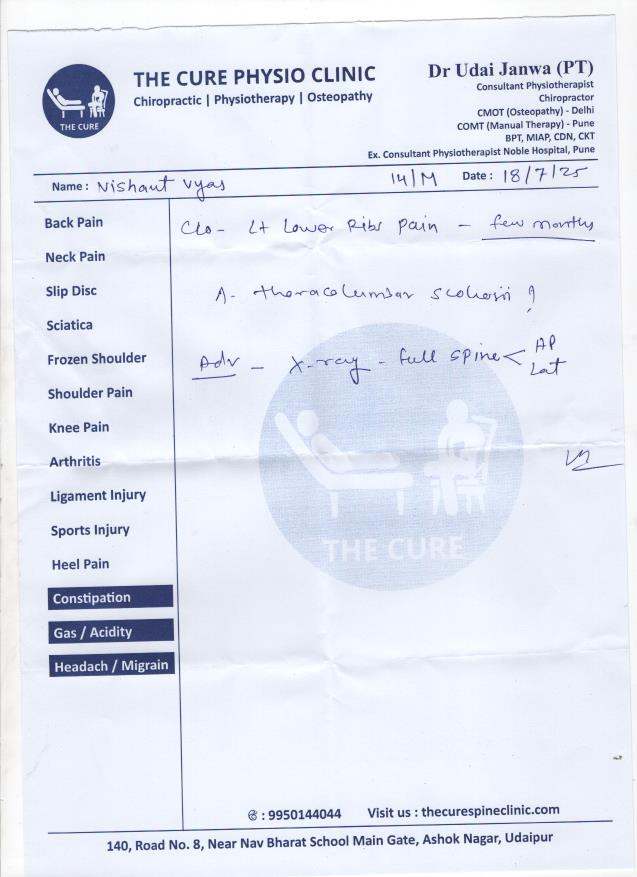 THE CURE PHYSIO CLINIC
Chiropractic | Physiotherapy | Osteopathy
THE CURE
Dr Udai Janwa (PT)
Consultant Physiotherapist
Chiropractor
CMOT (Osteopathy) - Delhi
COMT (Manual Therapy) - Pune
BPT, MIAP, CDN, CKT
Ex. Consultant Physiotherapist Noble Hospital, Pune
Name : Nishant Vyas 14/M Date : 18/7/25
Back Pain
Neck Pain
Slip Disc
Sciatica
Frozen Shoulder
Shoulder Pain
Knee Pain
Arthritis
Ligament Injury
Sports Injury
Heel Pain
Constipation
Gas / Acidity
Headach / Migrain
C/o - Lt Lower Ribs Pain - few months
A - thoracolumbar ?
Adv - X-ray - full spine < AP
Lat
THE CURE
: 9950144044 Visit us : thecurespineclinic.com
140, Road No. 8, Near Nav Bharat School Main Gate, Ashok Nagar, Udaipur